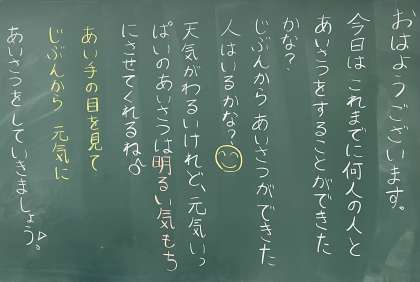 おはようございます。
今日は これまでに何人の人と
あいさつをすることができた
かな?
じぶんから あいさつができた
人はいるかな?
天気がわるいけれど、元気いっ
ぱいのあいさつは明るい気もち
にさせてくれるね
あい手の目を見て
じぶんから 元気に
あいさつをしていきましょう。